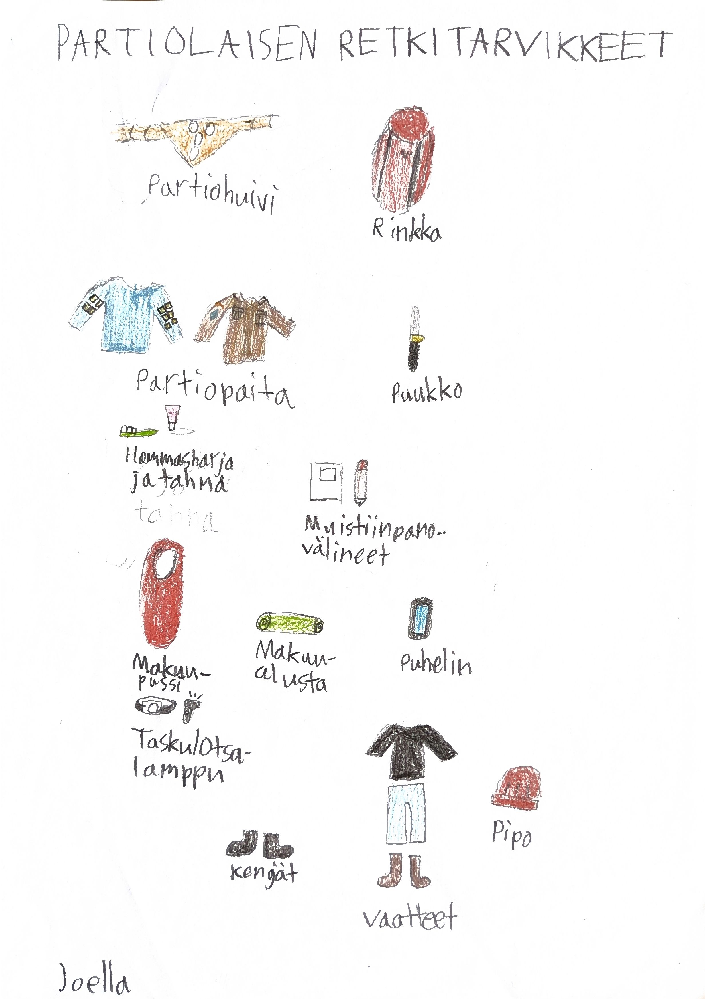 PARTIOLAISEN RETKITARVIKKEET
Partiohuivi
Rinkka
Partiopaita
Puukko
Hammasharja
ja tahna
Muistiinpano-
välineet
Makuu-
pussi
Makuu-
alusta
Puhelin
Tasku/Otsa-
lamppu
Pipo
kengät
vaatteet
Joella